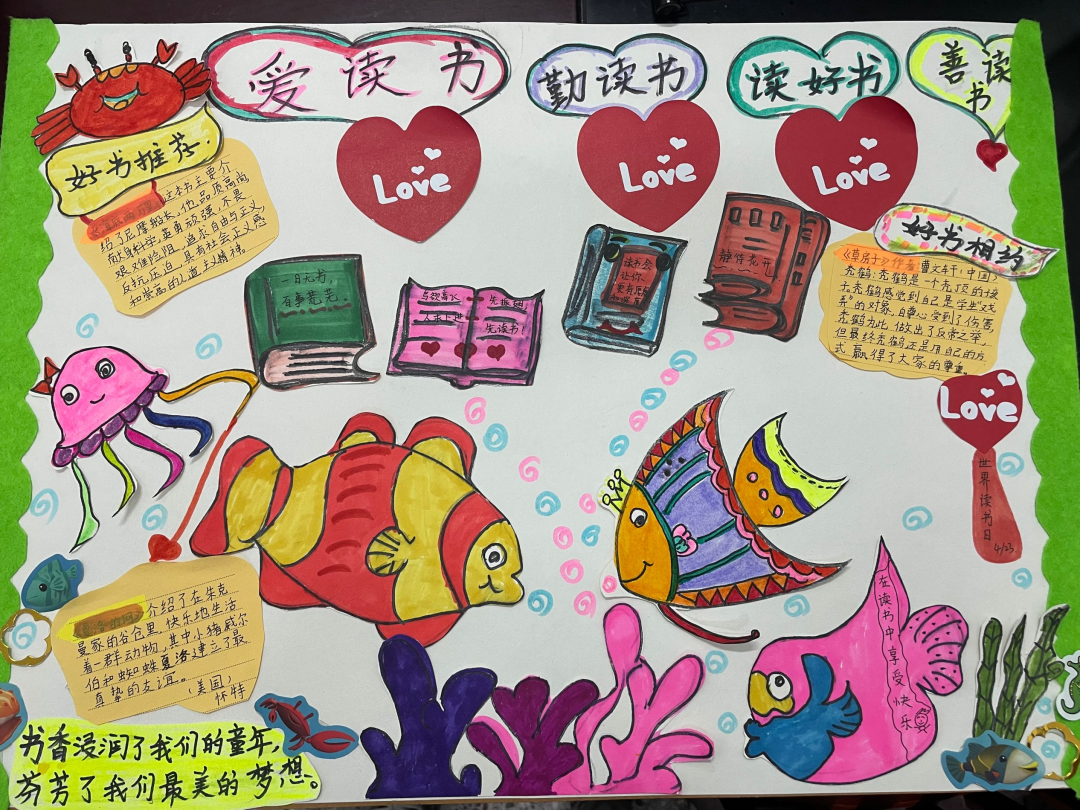 爱读书
勤读书
读好书
善读
书
Love
Love
Love
好书推荐.
这本书主要介
绍了尼摩船长，他品质高尚
献身科学，英勇顽强，不畏
艰难险阻，追求自由与正义，
反抗压迫，具有社会正义感
和崇高的人道主义精神。
一日无书，
百事荒芜。
与欲富人
先读书！
读书会
让你
更有思想
静待花开
好书相约
《草房子》作者：曹文轩！中国
秃鹤：秃鹤是一个秃顶的孩
子秃鹤感觉到自己是学生“戏
弄”的对象，自尊心受到了伤害
秃鹤为此做出了反常之举，
但最终秃鹤还是用自己的方
式赢得了大家的尊重。
Love
世界读书日
4/23
介绍了在朱克
曼家的谷仓里，快乐地生活
着一群动物，其中小猪威尔
伯和蜘蛛夏洛建立了最
真挚的友谊。
（美国）
怀特
在读书中享受快乐
书香浸润了我们的童年，
芬芳了我们最美的梦想。